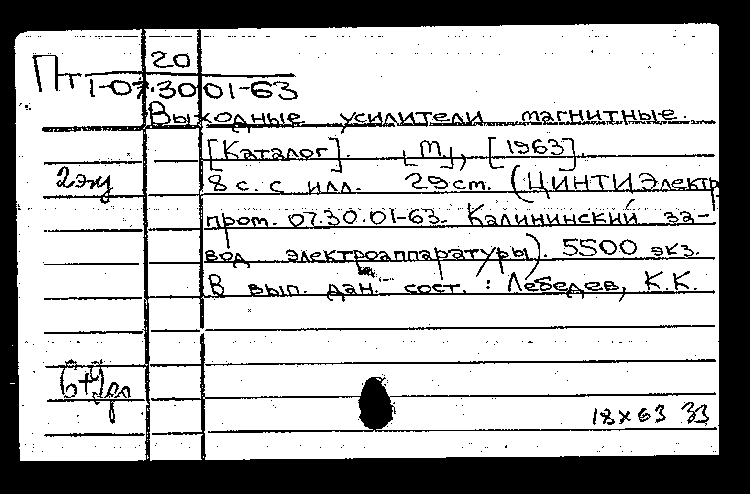 Пт 20
1-07.30.01-63
Выходные усилители магнитные.
[Каталог]. [М.], [1963].
2 экз 8 с. с илл. 29 см. (ЦИНТИЭлектр
пром. 07.30.01-63. Калининский за-
вод электроаппаратуры). 5500 экз.
В вып. дан. сост.: Лебедев, К.К.
18×63 33